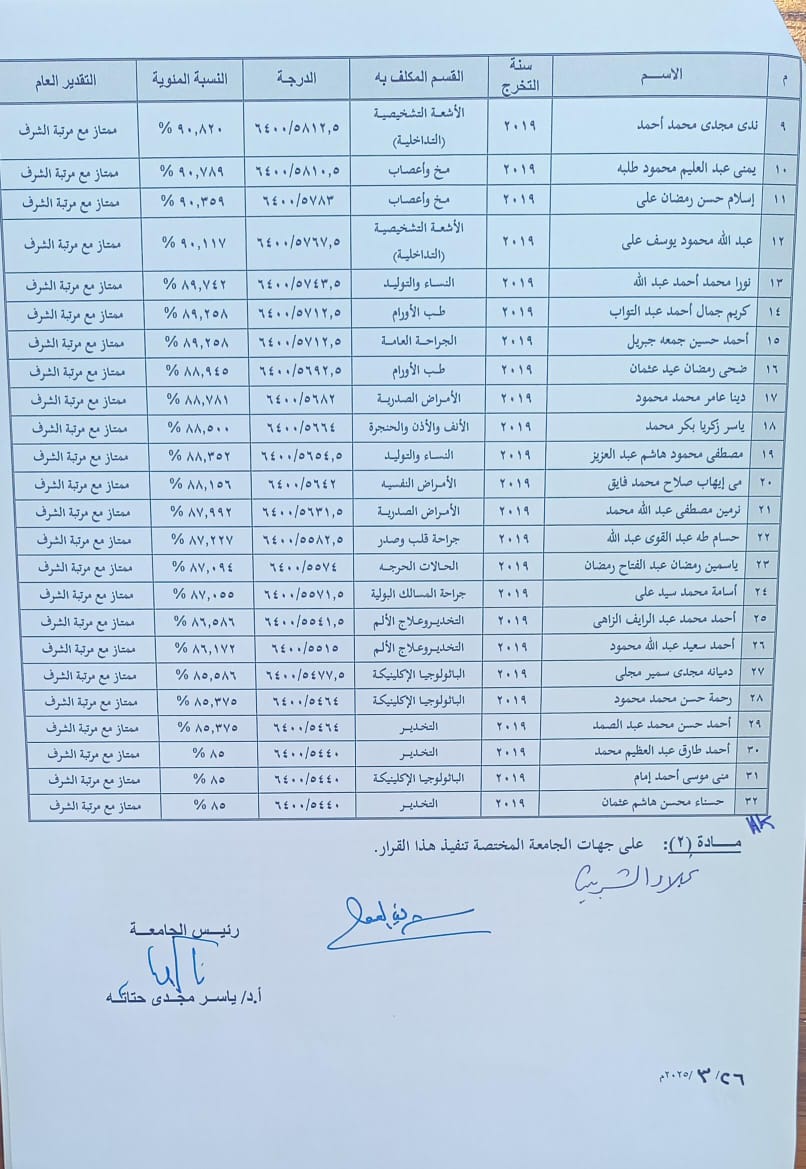 م الاســم سنة التخرج القسم المكلف به الدرجة النسبة المئوية التقدير العام
٩ ندى مجدى محمد أحمد ٢٠١٩ الأشعة التشخيصية (التداخلية) ٦٤٠٠/٥٨١٢,٥ ٩٠,٨٢٠ % ممتاز مع مرتبة الشرف
١٠ يمنى عبد العليم محمود طلبه ٢٠١٩ مخ وأعصاب ٦٤٠٠/٥٨١٠,٥ ٩٠,٧٨٩ % ممتاز مع مرتبة الشرف
١١ إسلام حسن رمضان على ٢٠١٩ مخ وأعصاب ٦٤٠٠/٥٧٨٣ ٩٠,٣٥٩ % ممتاز مع مرتبة الشرف
١٢ عبد الله محمود يوسف على ٢٠١٩ الأشعة التشخيصية (التداخلية) ٦٤٠٠/٥٧٦٧,٥ ٩٠,١١٧ % ممتاز مع مرتبة الشرف
١٣ نورا محمد أحمد عبد الله ٢٠١٩ النساء والتوليد ٦٤٠٠/٥٧٤٣,٥ ٨٩,٧٤٢ % ممتاز مع مرتبة الشرف
١٤ كريم جمال أحمد عبد التواب ٢٠١٩ طب الأورام ٦٤٠٠/٥٧١٢,٥ ٨٩,٢٥٨ % ممتاز مع مرتبة الشرف
١٥ أحمد حسين جمعه جبريل ٢٠١٩ الجراحة العامة ٦٤٠٠/٥٧١٢,٥ ٨٩,٢٥٨ % ممتاز مع مرتبة الشرف
١٦ ضحى رمضان عيد عثمان ٢٠١٩ طب الأورام ٦٤٠٠/٥٦٩٢,٥ ٨٨,٩٤٥ % ممتاز مع مرتبة الشرف
١٧ دينا عامر محمد محمود ٢٠١٩ الأمراض الصدرية ٦٤٠٠/٥٦٨٢ ٨٨,٧٨١ % ممتاز مع مرتبة الشرف
١٨ ياسر زكريا بكر محمد ٢٠١٩ الأنف والأذن والحنجرة ٦٤٠٠/٥٦٦٤ ٨٨,٥٠٠ % ممتاز مع مرتبة الشرف
١٩ مصطفى محمود هاشم عبد العزيز ٢٠١٩ النساء والتوليد ٦٤٠٠/٥٦٥٤,٥ ٨٨,٣٥٢ % ممتاز مع مرتبة الشرف
٢٠ مى إيهاب صلاح محمد فايق ٢٠١٩ الأمراض النفسيه ٦٤٠٠/٥٦٤٢ ٨٨,١٥٦ % ممتاز مع مرتبة الشرف
٢١ نرمين مصطفى عبد الله محمد ٢٠١٩ الأمراض الصدرية ٦٤٠٠/٥٦٣١,٥ ٨٧,٩٩٢ % ممتاز مع مرتبة الشرف
٢٢ حسام طه عبد القوى عبد الله ٢٠١٩ جراحة قلب وصدر ٦٤٠٠/٥٥٨٢,٥ ٨٧,٢٢٧ % ممتاز مع مرتبة الشرف
٢٣ ياسمين رمضان عبد الفتاح رمضان ٢٠١٩ الحالات الحرجه ٦٤٠٠/٥٥٧٤ ٨٧,٠٩٤ % ممتاز مع مرتبة الشرف
٢٤ أسامة محمد سيد على ٢٠١٩ جراحة المسالك البولية ٦٤٠٠/٥٥٧١,٥ ٨٧,٠٥٥ % ممتاز مع مرتبة الشرف
٢٥ أحمد محمد عبد الرايف الزاهى ٢٠١٩ التخديروعلاج الألم ٦٤٠٠/٥٥٤١,٥ ٨٦,٥٨٦ % ممتاز مع مرتبة الشرف
٢٦ أحمد سعيد عبد الله محمود ٢٠١٩ التخديروعلاج الألم ٦٤٠٠/٥٥١٥ ٨٦,١٧٢ % ممتاز مع مرتبة الشرف
٢٧ دميانه مجدى سمير مجلى ٢٠١٩ الباثولوجيا الإكلينيكة ٦٤٠٠/٥٤٧٧,٥ ٨٥,٥٨٦ % ممتاز مع مرتبة الشرف
٢٨ رحمة حسن محمد محمود ٢٠١٩ الباثولوجيا الإكلينيكة ٦٤٠٠/٥٤٦٤ ٨٥,٣٧٥ % ممتاز مع مرتبة الشرف
٢٩ أحمد حسن محمد عبد الصمد ٢٠١٩ التخدير ٦٤٠٠/٥٤٦٤ ٨٥,٣٧٥ % ممتاز مع مرتبة الشرف
٣٠ أحمد طارق عبد العظيم محمد ٢٠١٩ التخدير ٦٤٠٠/٥٤٤٠ ٨٥ % ممتاز مع مرتبة الشرف
٣١ منى موسى أحمد إمام ٢٠١٩ الباثولوجيا الإكلينيكة ٦٤٠٠/٥٤٤٠ ٨٥ % ممتاز مع مرتبة الشرف
٣٢ حسناء محسن هاشم عثمان ٢٠١٩ التخدير ٦٤٠٠/٥٤٤٠ ٨٥ % ممتاز مع مرتبة الشرف
مــادة (٢): على جهات الجامعة المختصة تنفيذ هذا القرار.
رئيس الجامعـة
أ.د/ ياسـر مجـدى حتاتـه
٢٦/٣/٢٠٢٥م